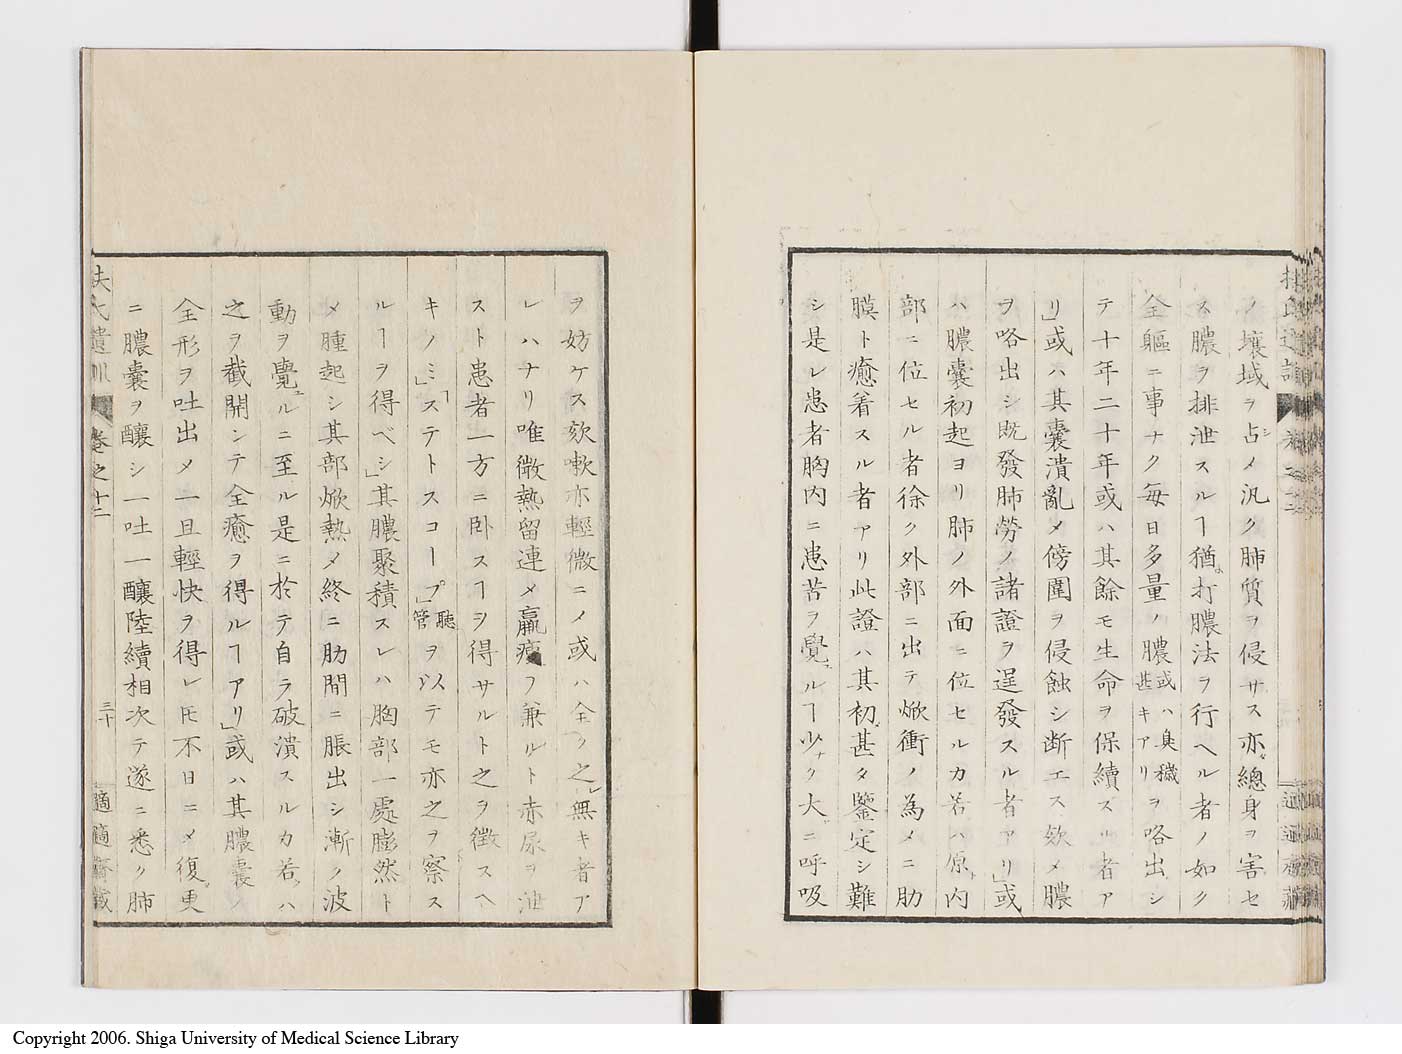 ノ壤域ヲ占メ汎ク肺質ヲ侵サス亦總身ヲ害セ
ス膿ヲ排泄スルヿ猶打膿法ヲ行ヘル者ノ如ク
全軀ニ事ナク毎日多量ノ膿或ハ臭穢甚キアリヲ咯出シ
テ十年二十年或ハ其餘モ生命ヲ保續スル者ア
リ」或ハ其囊潰亂メ傍圍ヲ侵蝕シ断エス欬メ膿
ヲ咯出シ既發肺勞ノ諸證ヲ逞發スル者アリ」或
ハ膿囊初起ヨリ肺ノ外面ニ位セルカ若ハ原内
部ニ位セル者徐ク外部ニ出テ焮衝ノ為メニ肋
膜ト癒着スル者アリ此證ハ其初甚タ鑒定シ難
シ是レ患者胸内ニ患苦ヲ覺ルヿ少ク大ニ呼吸
ヲ妨ケス欬嗽亦輕微ニメ或ハ全ク之無キ者ア
レハナリ唯微熱留連メ羸痩ヲ兼ルト赤尿ヲ泄
スト患者一方ニ卧スヿヲ得サルト之ヲ徴スヘ
キノミ」「ステトスコープ」聽管ヲ以テモ亦之ヲ察ス
ルヿヲ得ベシ」其膿聚積スレハ胸部一處膨然ト
メ腫起シ其部焮熱メ終ニ肋間ニ脹出シ漸ク波
動ヲ覺ルニ至ル是ニ於テ自ラ破潰スルカ若ハ
之ヲ截開シテ全癒ヲ得ルヿアリ」或ハ其膿囊ノ
全形ヲ吐出メ一旦輕快ヲ得レ𪜈不日ニメ復更
ニ膿囊ヲ釀シ一吐一釀陸續相次テ遂ニ悉ク肺
扶氏遺訓 卷之十二 三十 適適齋藏
Copyright 2006. Shiga University of Medical Science Library